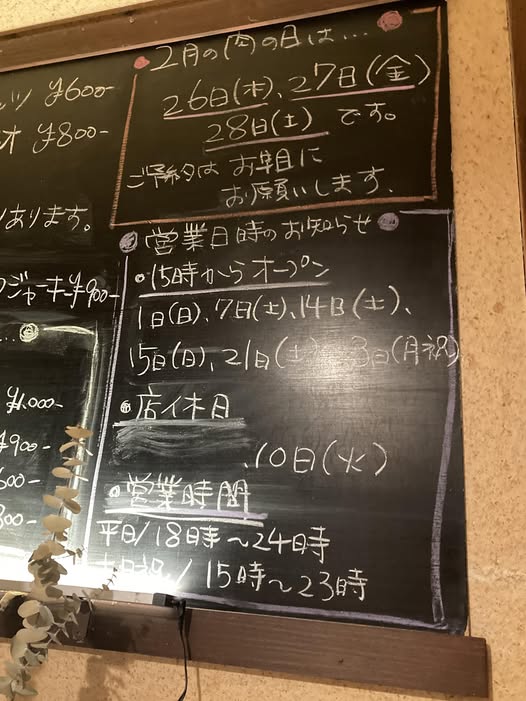 2月の肉の日は…
26日(木)、27日(金)
28日(土)です。
ご予約はお早目に
お願いします。
営業日時のお知らせ
・15時からオープン
1日(日)、7日(土)、14日(土)、
15日(日)、21日(土) 3日(月祝)
・店休日
、10日(火)
・営業時間
平日/18時〜24時
土日祝/15時〜23時
ツ ¥600-
オ ¥800-
あります。
ジャーキー¥900-
¥1.000-
¥900-
600-
800-